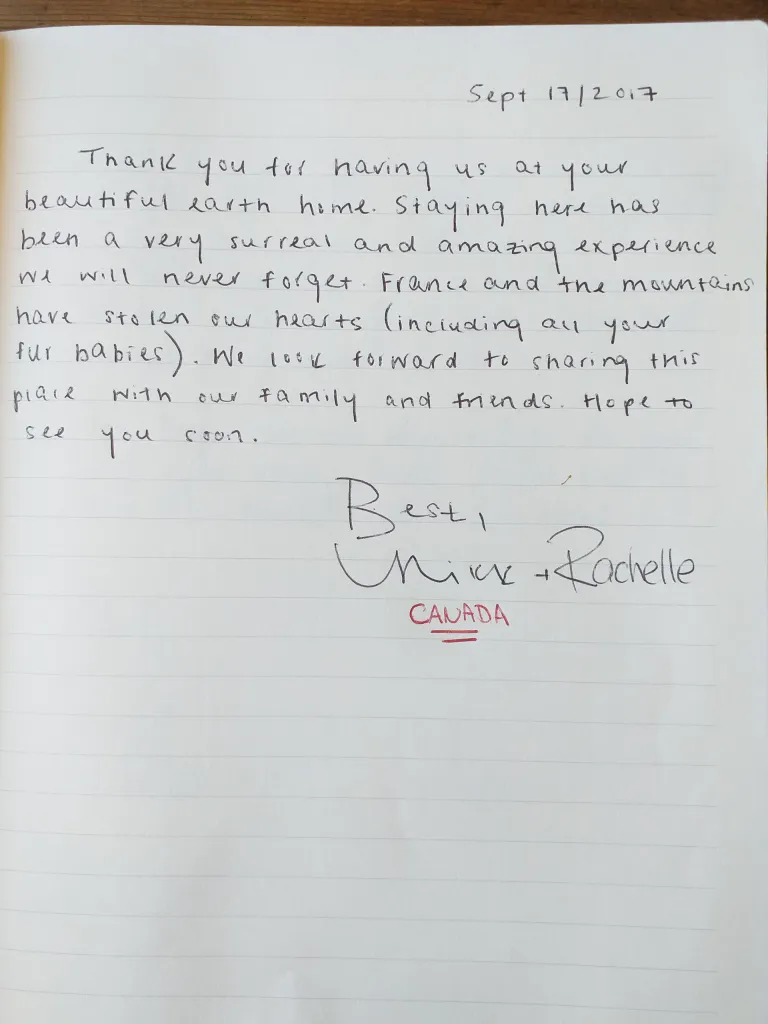 Sept 17/2017
Thank you for having us at your
beautiful earth home. Staying here has
been a very surreal and amazing experience
we will never forget. France and the mountains
have stolen our hearts (including all your
fur babies). We look forward to sharing this
place with our family and friends. Hope to
see you soon.
Best,
Nick + Rachelle
CANADA